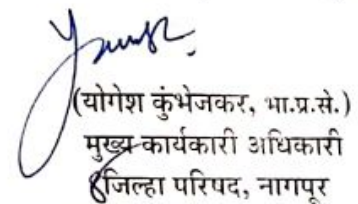 (योगेश कुंभेजकर, भा.प्र.से.)
मुख्य कार्यकारी अधिकारी
जिल्हा परिषद, नागपूर